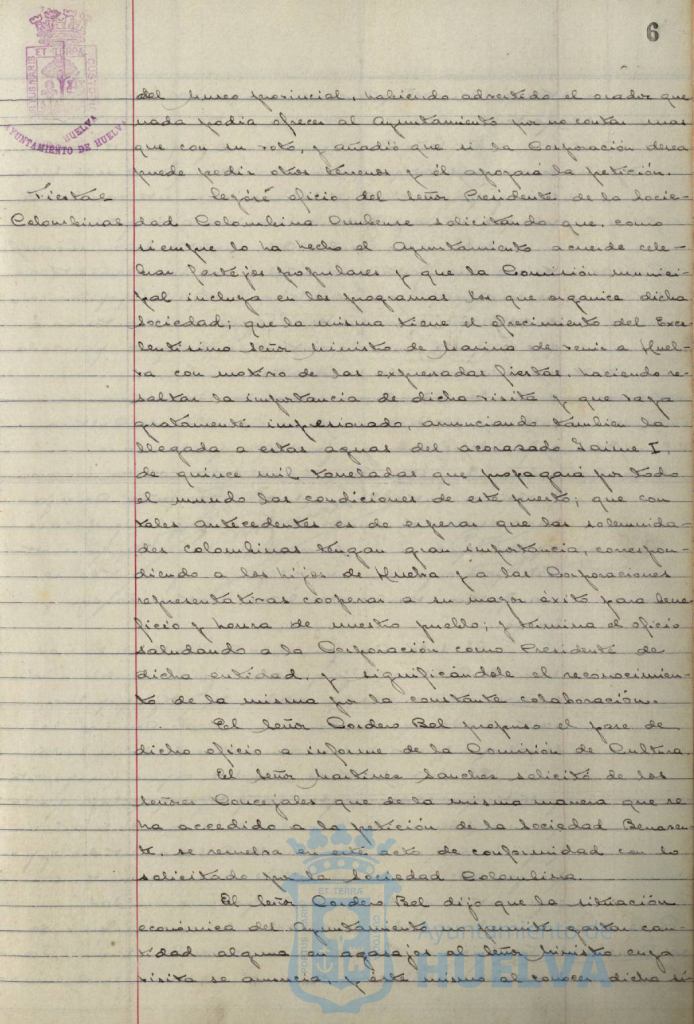 6
PORTUS MARIS ET TERRAE CUSTODIA
AYUNTAMIENTO DE HUELVA
HUELVA
del Museo provincial, habiendo advertido el orador que
nada podia ofrecer al Ayuntamiento por no contar mas
que con su voto, y añadió que si la Corporación desea
puede pedir otros terrenos y él apoyará la petición.
Fiestas
Colombinas
Leyóse oficio del Señor Presidente de la Socie-
dad Colombina Onubense solicitando que, como
siempre lo ha hecho el Ayuntamiento acuerde cele-
brar festejos populares y que la Comisión munici-
pal incluya en los programas los que organice dicha
Sociedad; que la misma tiene el ofrecimiento del Exce-
lentísimo Señor Ministro de Marina de venir a Huel-
va con motivo de las expresadas fiestas, haciendo re-
saltar la importancia de dicha visita y que vaya
gratamente impresionado, anunciando tambien la
llegada a estas aguas del acorazado Jaime I,
de quince mil toneladas que propagará por todo
el mundo las condiciones de este puerto; que con
tales antecedentes es de esperar que las solemnida-
des colombinas tengan gran importancia, correspon-
diendo a los hijos de Huelva y a las Corporaciones
representativas cooperar a su mayor éxito para bene-
ficio y honra de nuestro pueblo; y termina el oficio
saludando a la Corporación como Presidente de
dicha entidad, y significándole el reconocimien-
to de la misma por la constante colaboración.
El Señor Cordero Bel propuso el pase de
dicho oficio a informe de la Comisión de Cultura.
El Señor Martinez Sanchez solicitó de los
Señores Concejales que de la misma manera que se
ha accedido a la petición de la Sociedad Benaven-
te, se resuelva en este acto de conformidad con lo
solicitado por la Sociedad Colombina.
El Señor Cordero Bel dijo que la situación
económica del Ayuntamiento no permite gastar can-
tidad alguna en agasajos al Señor Ministro cuya
visita se anuncia, y éste mismo al conocer dicha si-
Ayuntamiento de
HUELVA